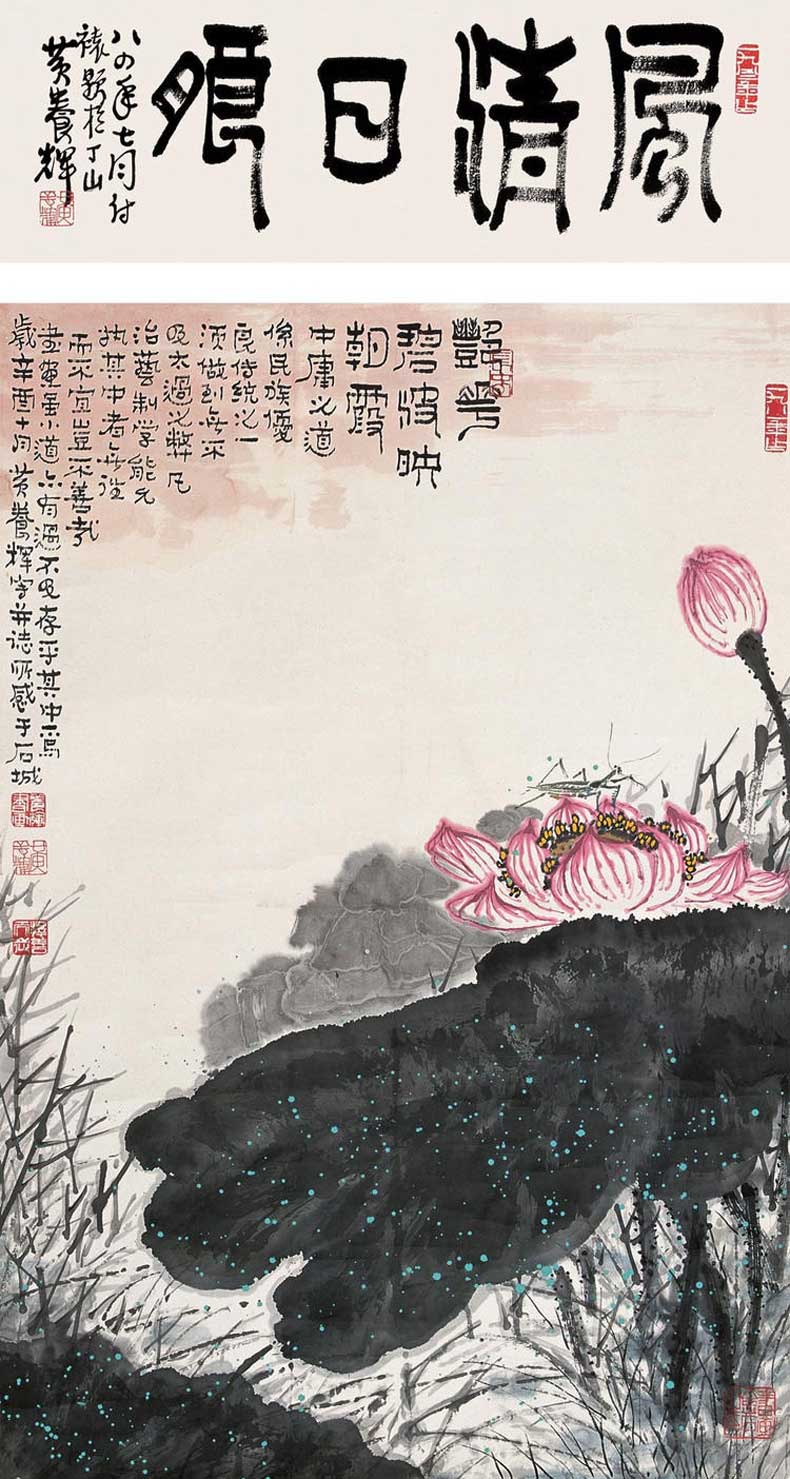 風清日朖
八四年七月付
裱題於丁山
黄養輝
豔華
碧波映
朝霞
中庸之道
係民族優
良传統之一
须做到無不
及太過之弊凡
治藝制学能允
执其中者無往
而不宜豈不善哉
書畫虽小道亦有過不及存乎其中焉
歲辛酉十月黄養輝写并誌所感于石城